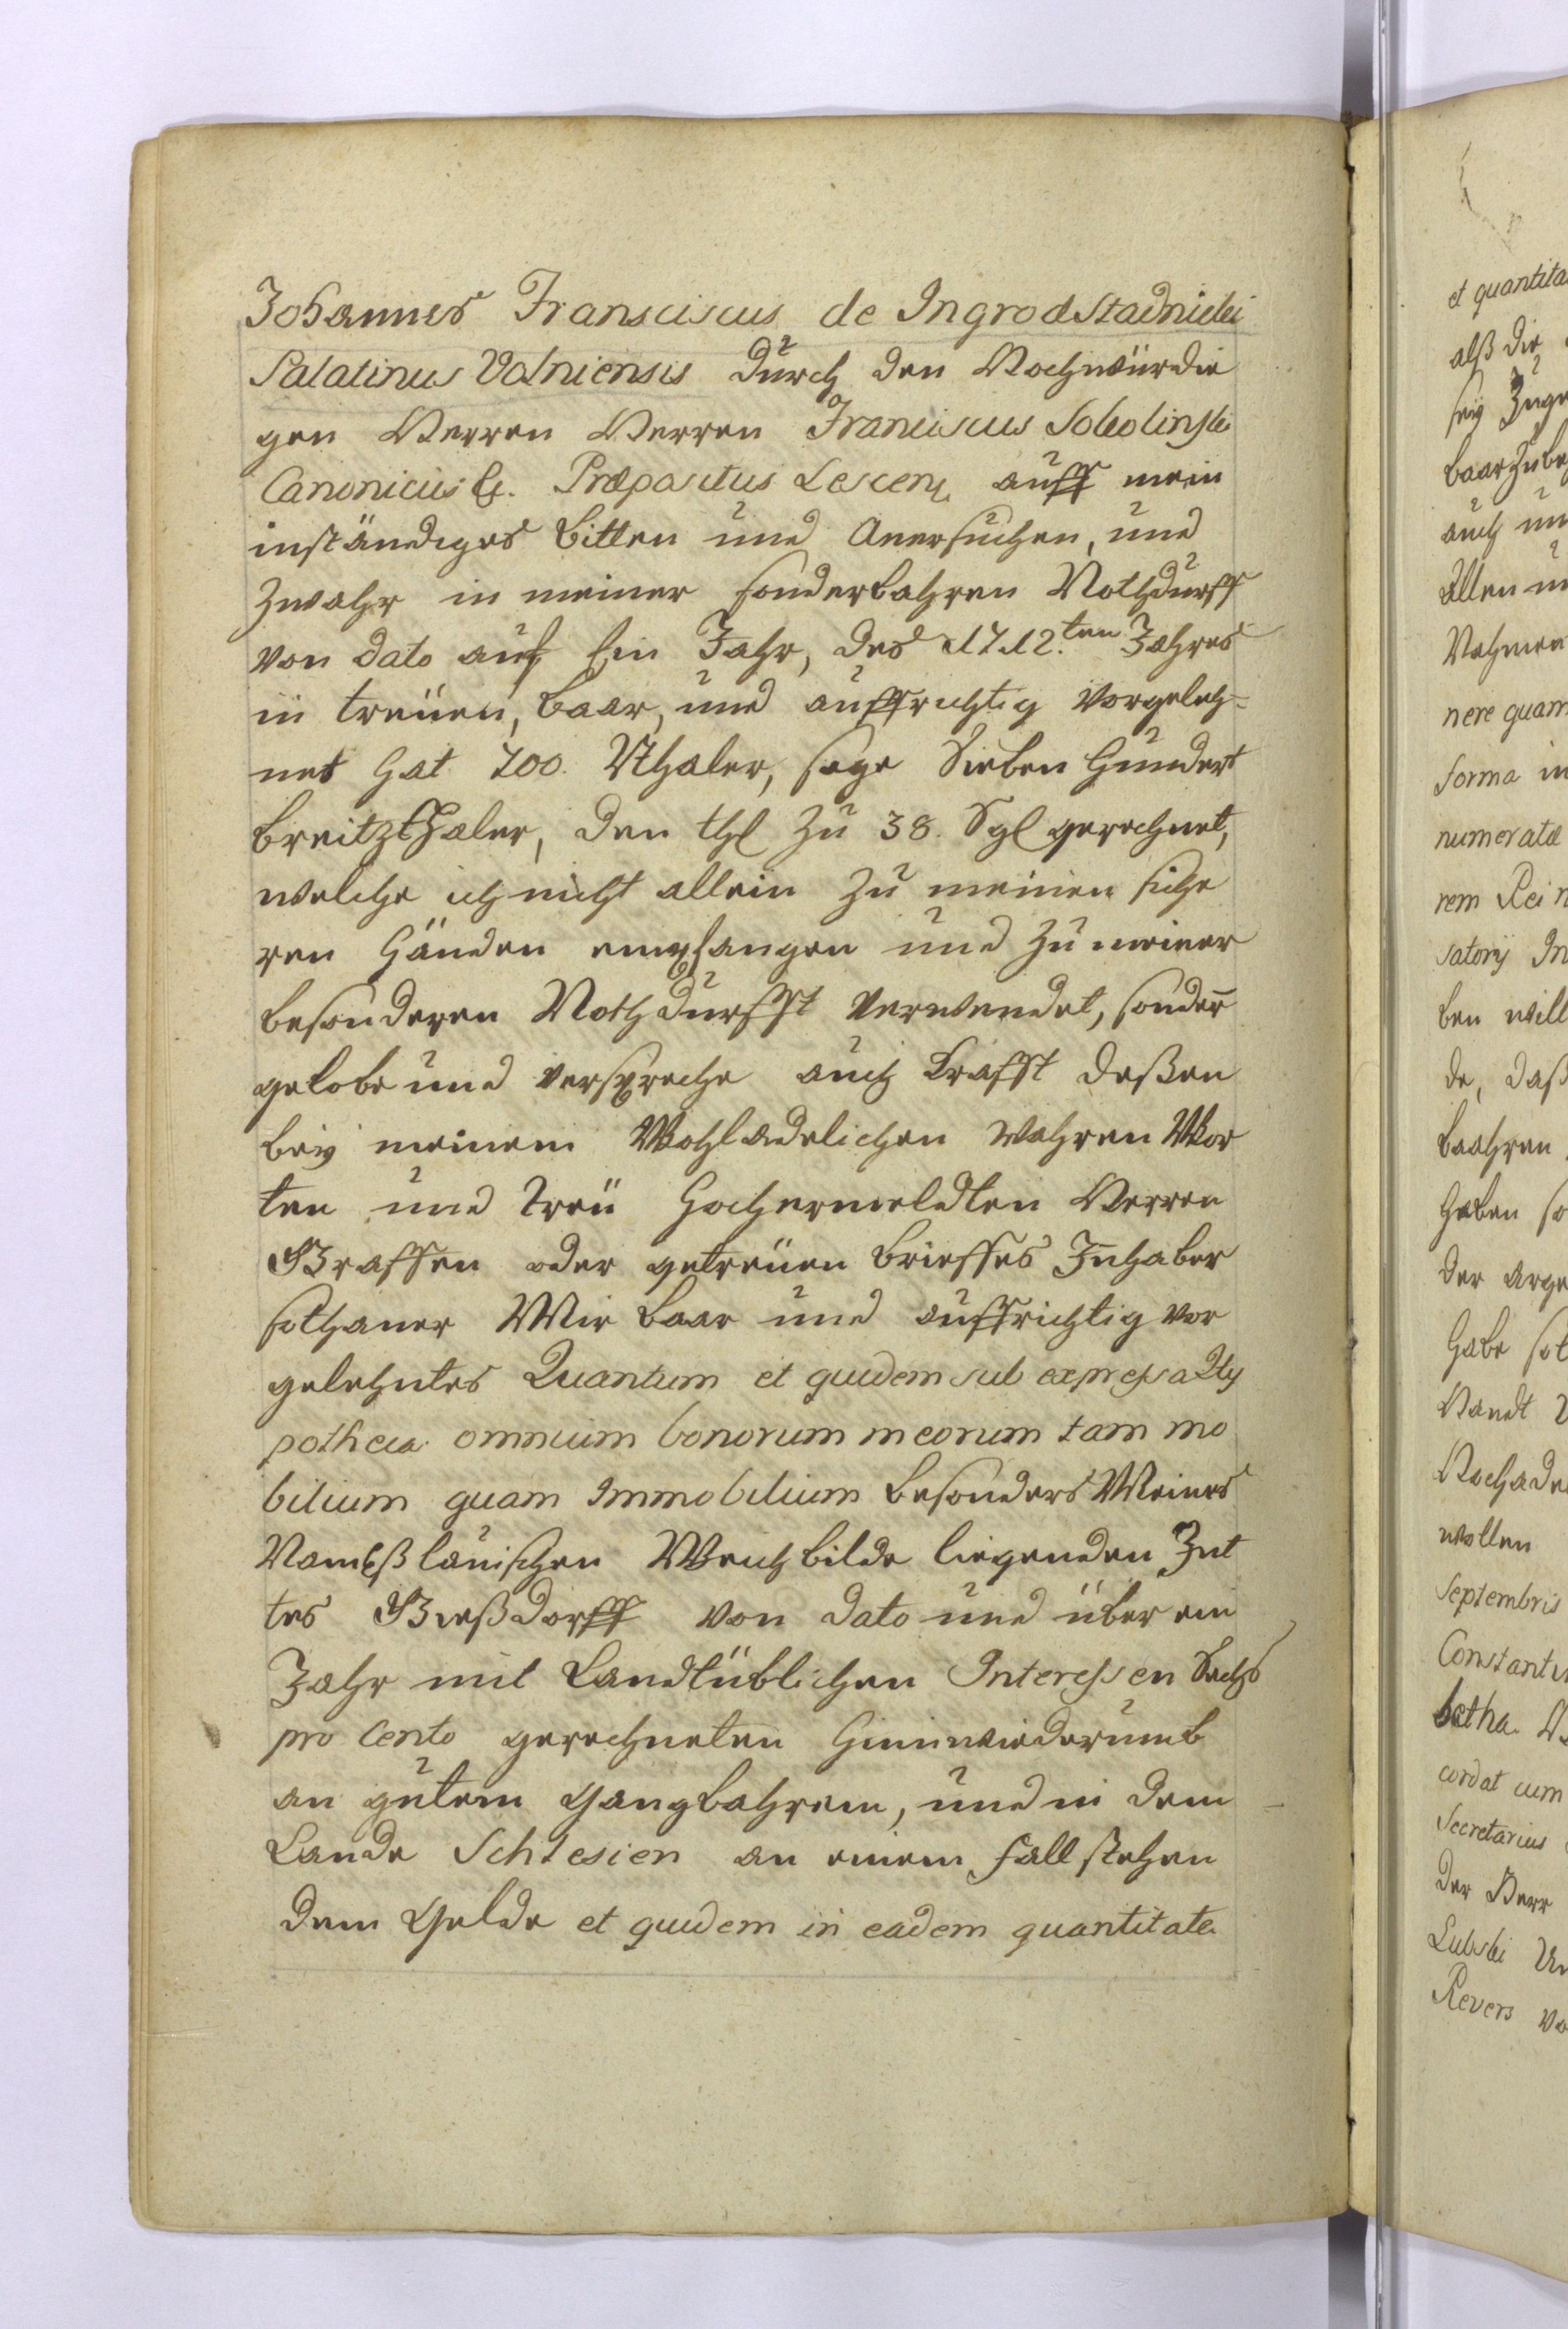 Johannes Fransciscus de Ingrod Stadnicki
Palatinus Volniensis durch den Hochwürdi
gen Herren Herren Franciscus Sokolinski
Canonicus & Præpositus Lescens auff mein
inständiges bitten und Anersuchen, und
zwahr in meiner sonderbahren Nothdurff
von dato auf Ein Jahr, des 1712.ten Jahres
in treuen, baar, und auffrichtig vorgeleh=
net hat 700. Rthaler, sage Sieben hundert
breitzthaler, den thl zu 38. Sgl gerechnet,
welche ich nicht allein zu meinen siche
ren händen empfangen und zu meiner
besonderen Nothdurfft verwendet, sonder̄
gelobe und verspreche auch krafft deßen
beÿ meinem Wohladelichen wahren Wor
ten und treü hochermeldten Herren
Graffen oder getreüen brieffes Inhaber
sothaner Mir baar und auffrichtig vor
gelehntes Quantum et quidem sub expressa Hy
potheca omnium bonorum meorum tam mo
bilium quam Immobilium besonders Meines
Namßlauischen Weichbilde liegenden Gut
tes Großdorff von dato und über ein
Jahr mit Landtüblichen Interessen Sechs
pro Cento gerechneten hinnwiederumb
an gutem gangbahrem, und in dem
Lande Schlesien an einem fall stehen
dem Gelde et quidem in eadem quantitate
et quantita
alß die
seÿ Zuge
baar zu be
auch un
Allen u
Nahmen
nere quam
forma in
numeratæ
rem Rei
satorÿ In
ben will
de, daß
baahren
haben so
der arge
habe sol
Handt
Hochade
wollen
Septembris
Constanti
betha
cordat cum
Secretarius
der Herr
Lubski
Revers vo